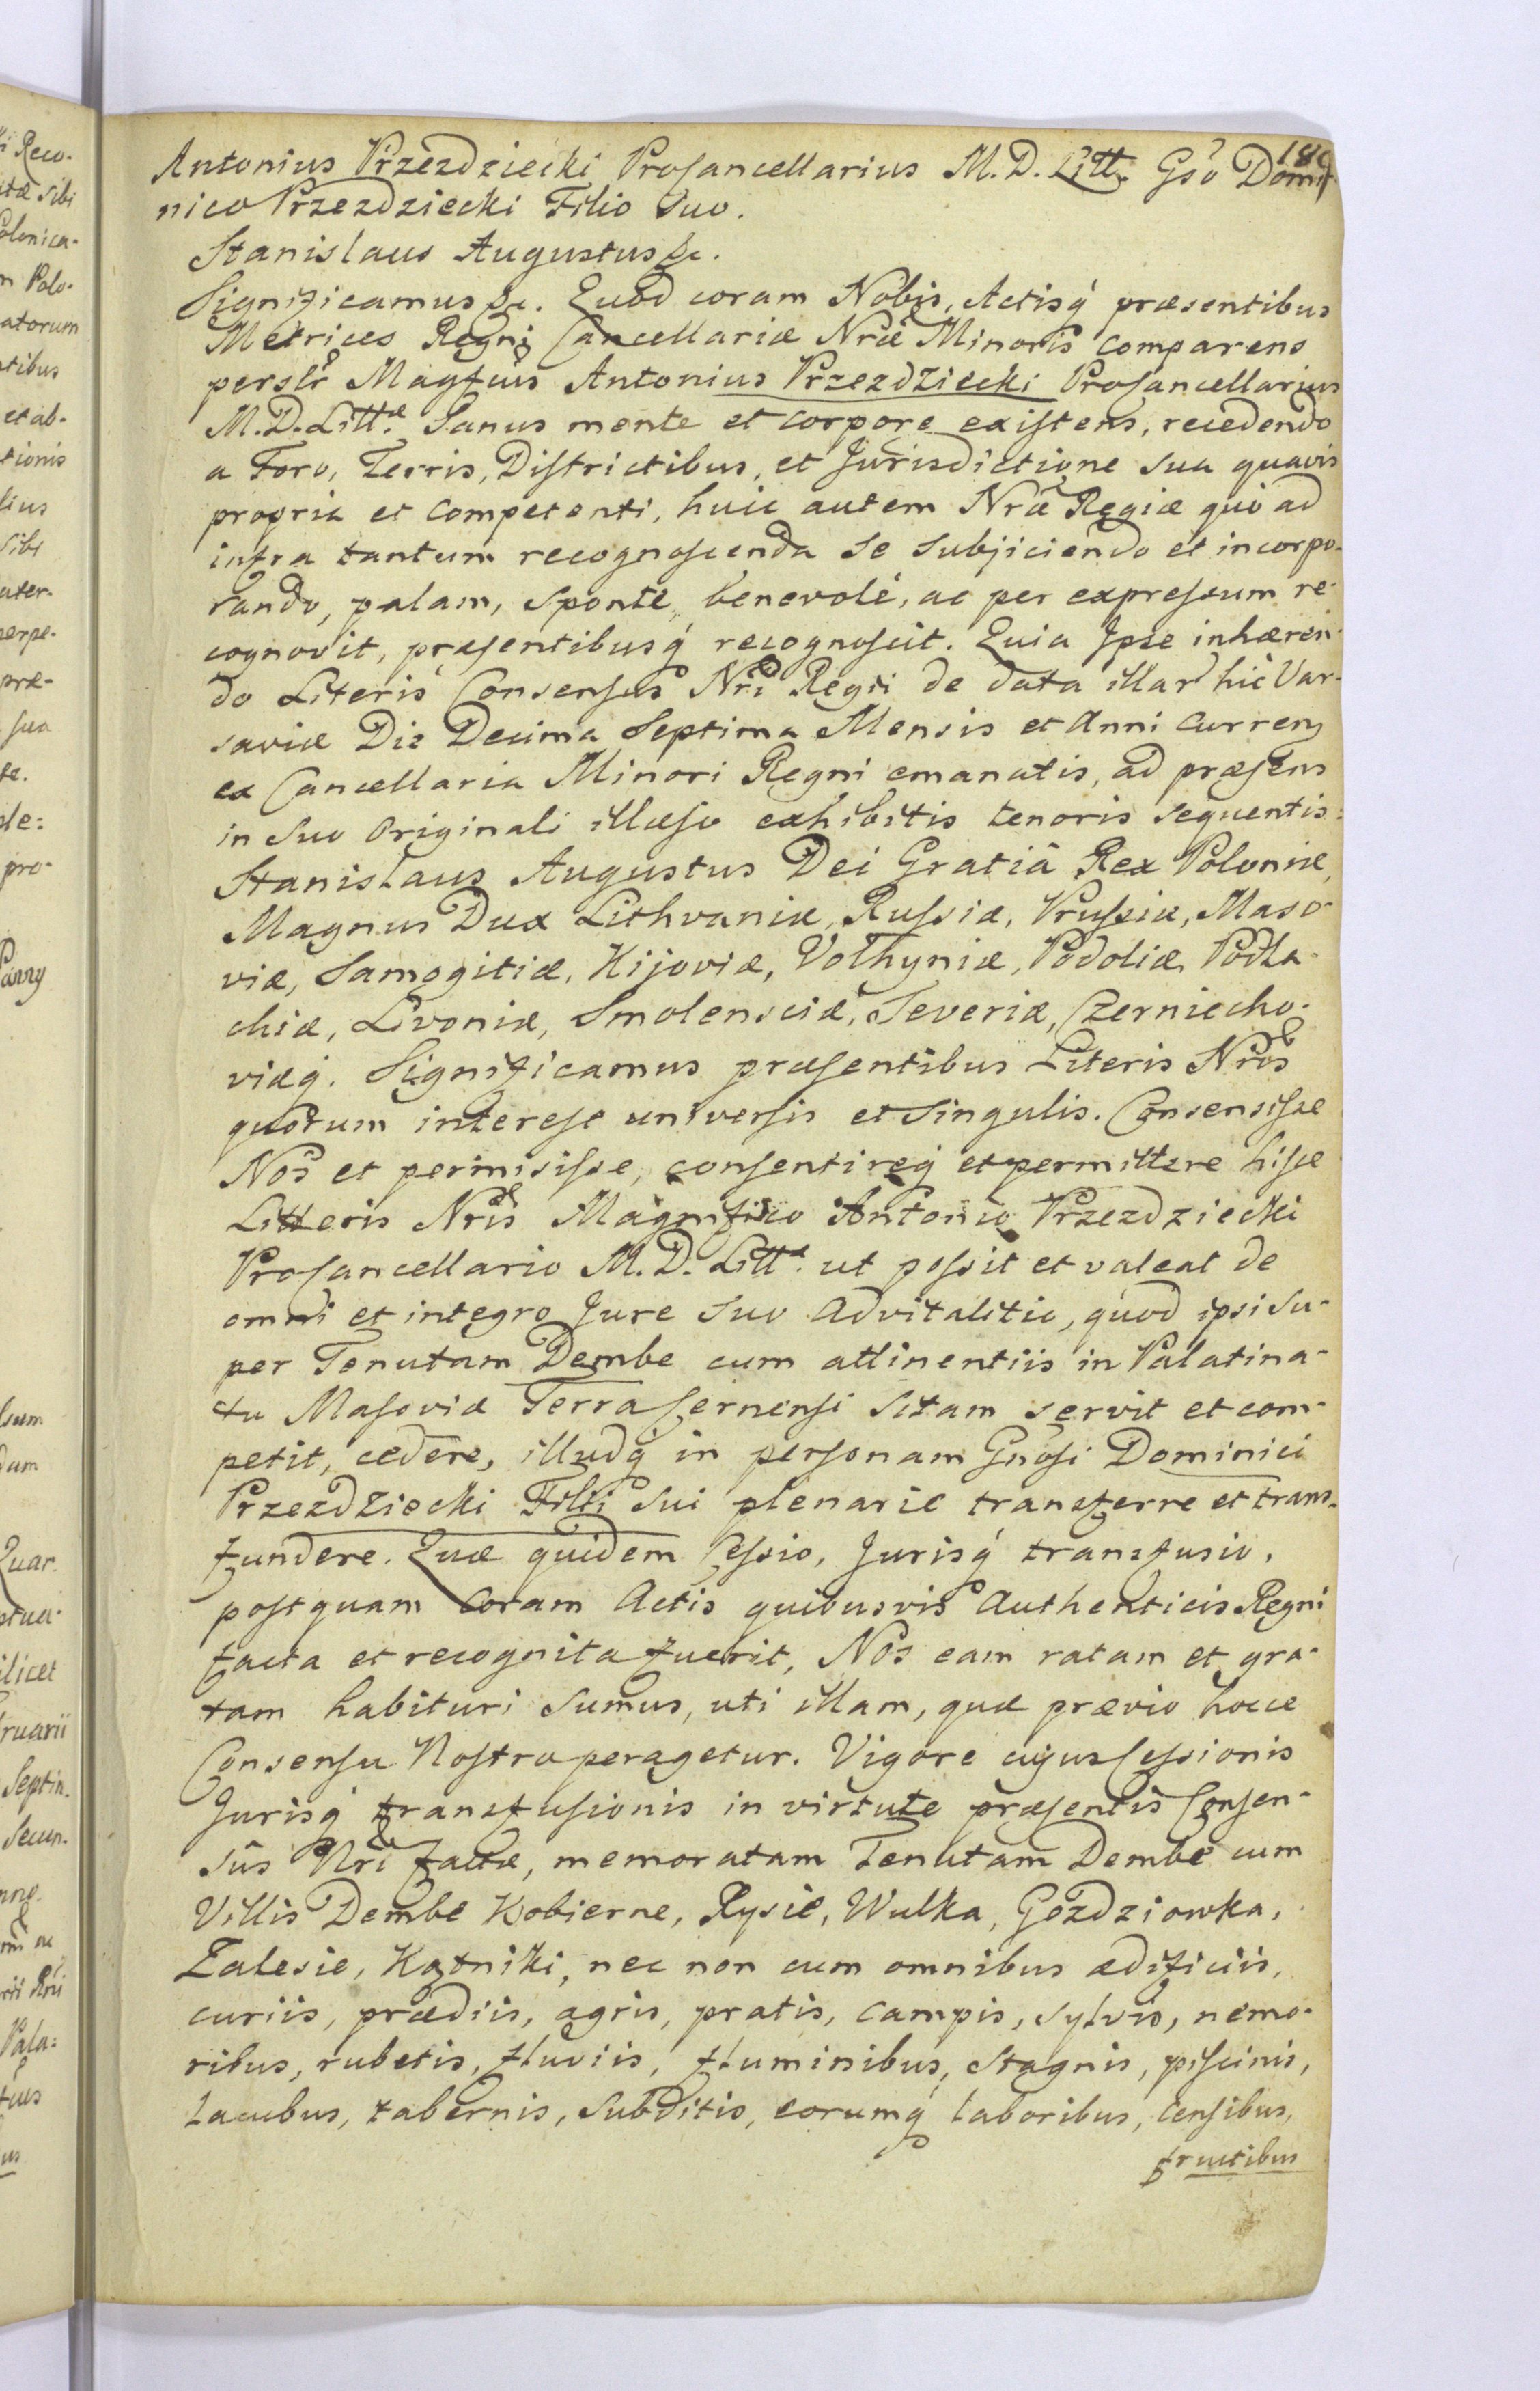 Antonius Przezdziecki Procancellarius M. D. Litt. Gso Domi-
nico Przezdziecki Filio Suo.
Stanislaus Augustus &c.
Significamus &c. Quod coram Nobis, Actisq́ præsentibus
Metrices Regni Cancellariæ Nræ Minoris comparens
persltr Magfcus Antonius Przezdziecki Procancellarius
M. D. Littæ. Sanus mente et corpore existens, recedendo
a Foro, Terris, Districtibus, et Jurisdictione sua quavis
propria et competenti, huic autem Nræ Regiæ quò ad
infra tantum recognoscenda se subjiciendo et incorpo-
rando, palam, sponte, benevolè, ac per expressum re-
cognovit, præsentibusq́ recognoscit. Quia Ipse inhæren-
do Literis Consensus Nri Regii de data illar hic Var-
saviæ Die Decima Septima Mensis et Anni curren
ex Cancellaria Minori Regni emanatis, ad præsens
in suo Originali illæso exhibitis tenoris sequentis:
Stanislaus Augustus Dei Gratiâ Rex Poloniæ,
Magnus Dux Lithvaniæ, Russiæ, Prussiæ, Maso-
viæ, Samogitiæ, Kijoviæ, Volhyniæ, Podoliæ, Podla-
chiæ, Livoniæ, Smolensciæ, Severiæ, Czerniecho-
viæq́. Significamus præsentibus Literis Nris
quorum interest universis et singulis. Consensisse
Nos et permisisse, consentireq́ et permittere hisce
Litteris Nris Magnifico Antonio Przezdziecki
Procancellario M. D. Littæ. ut possit et valeat de
omni et integro Jure suo Advitalitio, quod ipsi su-
per Tenutam Dembe cum attinentiis in Palatina-
tu Masoviæ Terra Cernensi sitam servit et com-
petit, cedere, illudq́ in personam Gnosi Dominici
Przezdziecki Filii sui plenarie transferre et trans-
fundere. Quæ quidem Cessio, Jurisq́ transfusio,
postquam coram Actis quibusvis Authenticis Regni
facta et recognita fuerit, Nos eam ratam et gra-
tam habituri sumus, uti illam, quæ prævio hocce
Consensu Nostro peragetur. Vigore cujus Cessionis
Jurisq́ transfusionis in virtute præsentis Consen-
sûs Nri factæ, memoratam Tenutam Dembe cum
Villis Dembe Kobierne, Rysie, Wulka, Gozdziowka,
Zalesie, Kątniki, nec non cum omnibus ædificiis,
curiis, prædiis, agris, pratis, campis, sylvis, nemo-
ribus, rubetis, fluviis, fluminibus, stagnis, piscinis,
lacubus, tabernis, subditis, eorumq́ laboribus, censibus,
fructibus